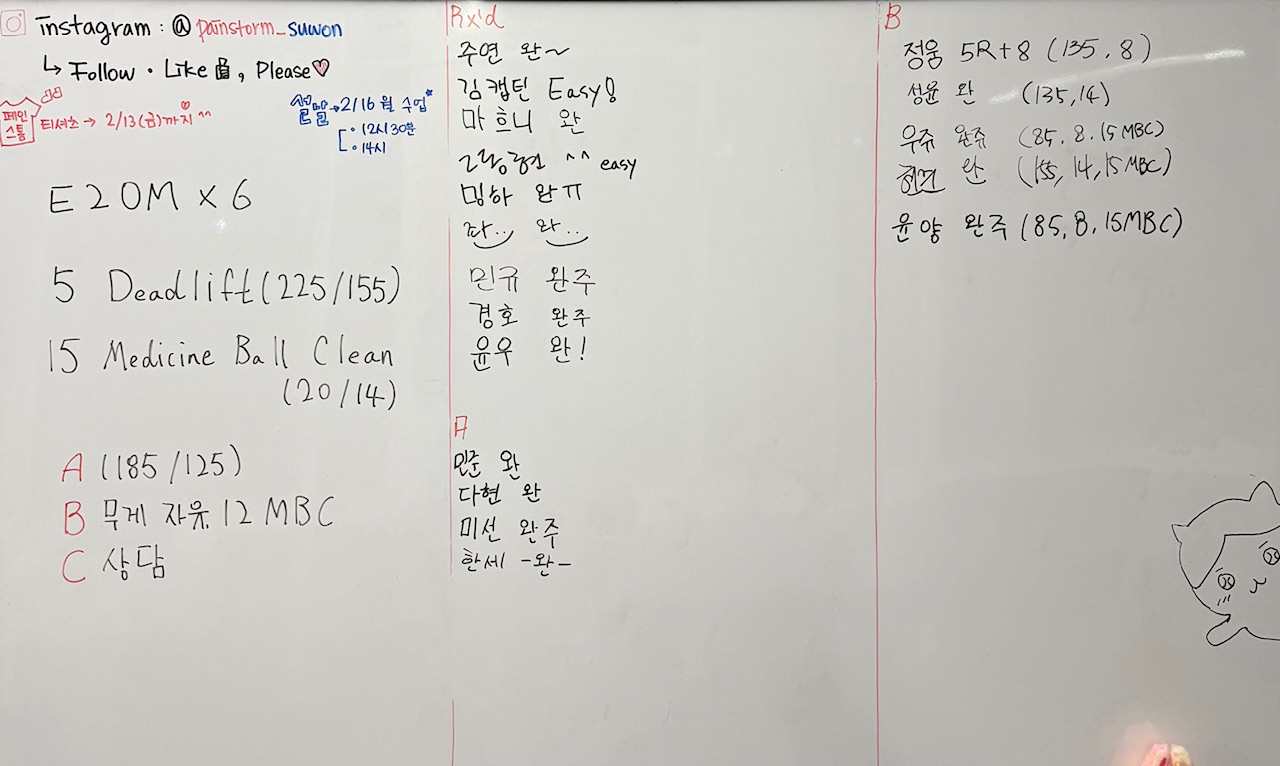 instagram : @painstorm_suwon
↳ Follow · Like , Please♡
페인
스톰
티셔츠 → 2/13(금)까지 ^^
설날 → 2/16 월 수업*
· 12시 30분
· 14시
E 2 0M × 6
5 Deadlift (225/155)
15 Medicine Ball Clean
(20/14)
A (185/125)
B 무게 자유, 12 MBC
C 상담
Rx'd
주연 완~
김캡틴 Easy!
마 흐니 완
^^ easy
밍하 완ㅠ
좌.. 와..
민규 완주
경호 완주
윤우 완!
A
민준 완
다현 완
미선 완주
한세 -완-
B
정웅 5R+8 (135, 8)
성윤 완 (135, 14)
우쥬 완쥬 (85, 8, 15 MBC)
완 (155, 14, 15 MBC)
윤양 완주 (85, 8, 15 MBC)